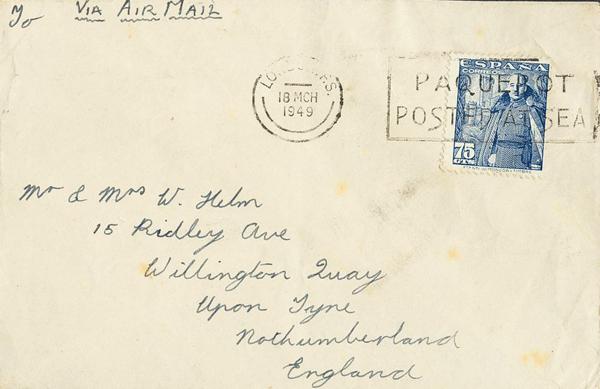 To
VIA AIR MAIL
LONDON F.S.
18 MCH
1949
PAQUEBOT
POSTED AT SEA
ESPAÑA
CORREOS
75
CTS
Mr & Mrs W. Helm
15 Ridley Ave
Willington Quay
Upon Tyne
Nothumberland
England